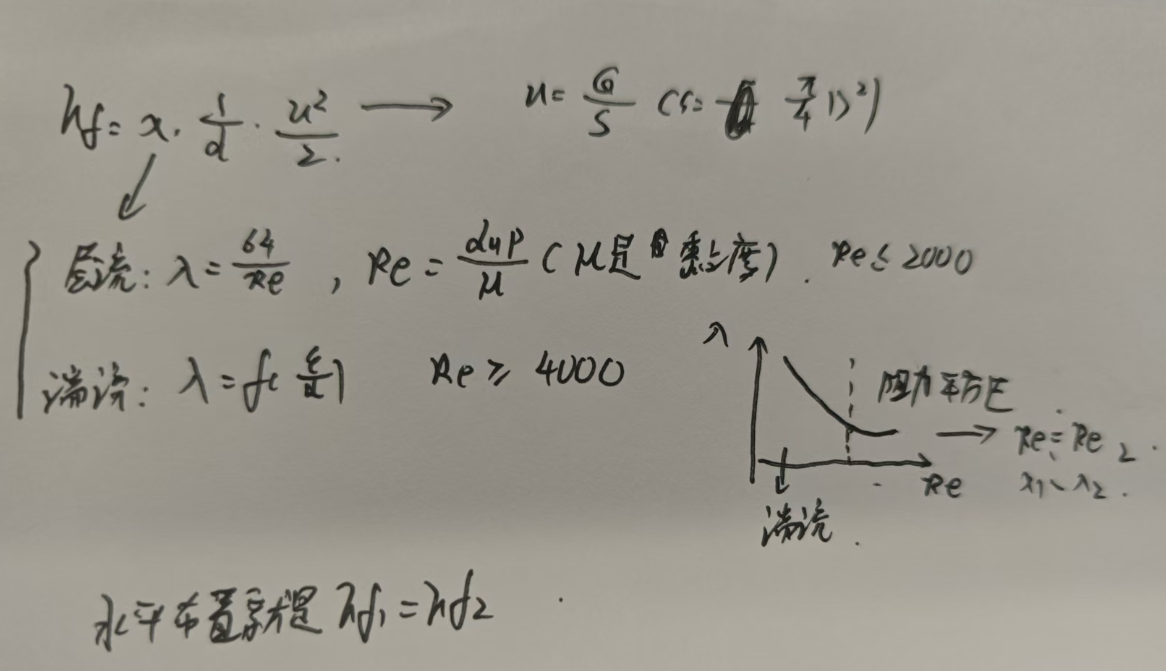 hf = λ · l/d · u²/2. → u = G/S (S = π/4 D²)
层流: λ = 64/Re , Re = duρ/μ (μ是黏度). Re ≤ 2000
湍流: λ = f(ε/d) Re ≥ 4000
λ
阻力平方区
→ Re₁ = Re₂.
Re
λ₁、λ₂.
湍流.
水平布置 hf₁ = hf₂